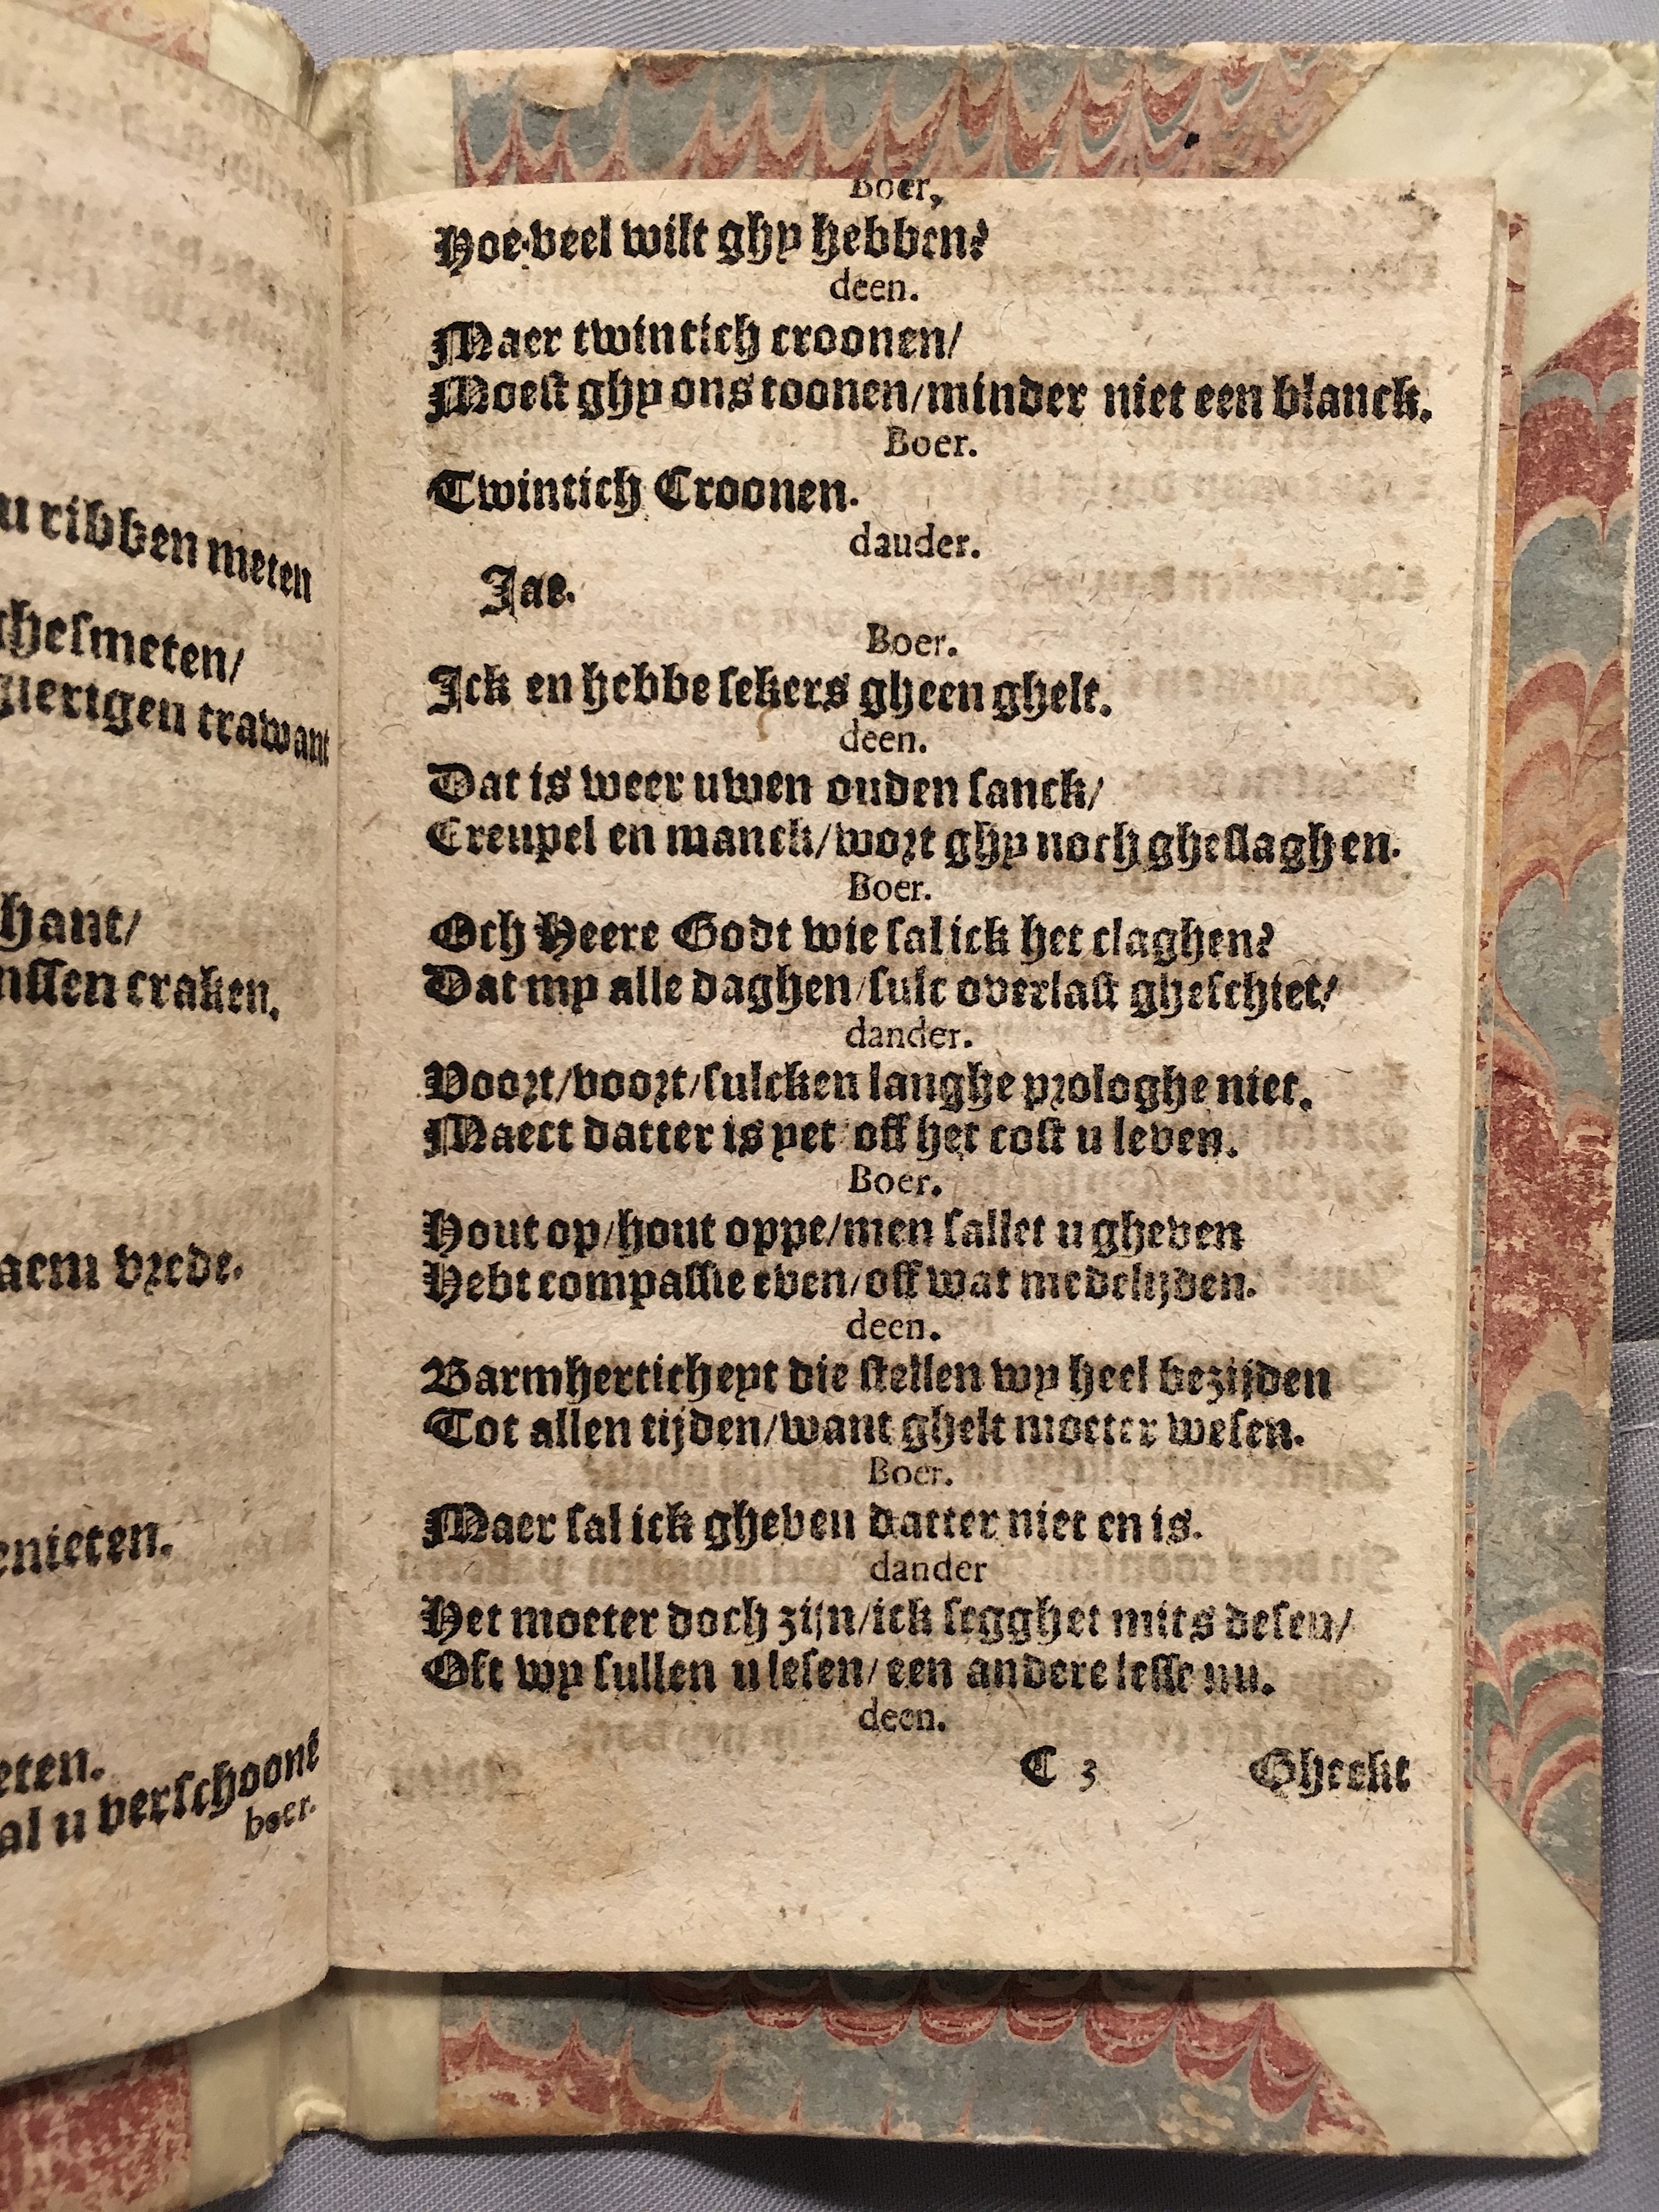 u ribben meten
ghesmeten/
gierigen trawant
hant/
nssen craken.
aem vrede.
enieten.
eten.
al u verschoont
boer.
Boer,
Hoe veel wilt ghy hebben?
deen.
Maer twintich croonen/
Moest ghy ons toonen/minder niet een blanck.
Boer.
Twintich Croonen.
dauder.
Jae.
Boer.
Ick en hebbe sekers gheen ghelt.
deen.
Dat is weer uwen ouden sanck/
Creupel en manck/wort ghy noch gheslaghen.
Boer.
Och Heere Godt wie sal ick het claghen?
Dat my alle daghen/sulc overlast gheschiet/
dander.
Voort/voort/sulcken langhe prologhe niet.
Maect datter is yet off het cost u leven.
Boer.
Hout op/hout oppe/men sallet u gheven
Hebt compassie even/off wat medelijden.
deen.
Barmherticheyt die stellen wy heel bezijden
Tot allen tijden/want ghelt moeter wesen.
Boer.
Maer sal ick gheven datter niet en is.
dander
Het moeter doch zijn/ick segghet mits desen/
Oft wy sullen u lesen/een andere lesse nu.
deen.
C 3 Gheckt